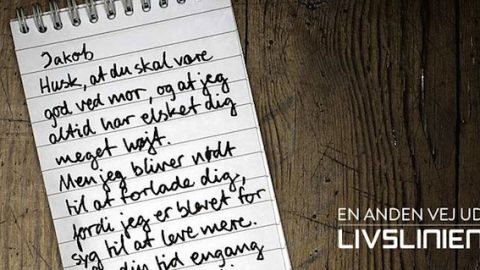 Jakob
Husk, at du skal være
god ved mor, og at jeg
altid har elsket dig
meget højt.
Men jeg bliver nødt
til at forlade dig,
fordi jeg er blevet for
syg til at leve mere.
din tid engang
EN ANDEN VEJ UD
LIVSLINIEN